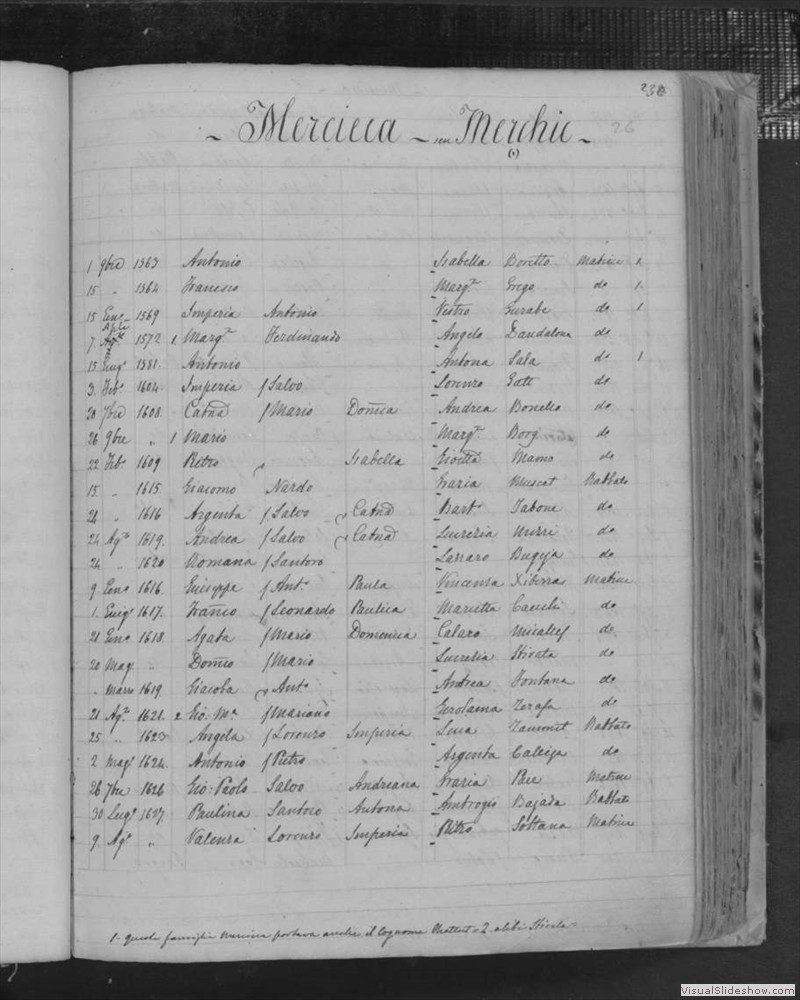 238
- Mercieca - seu Merchic -
26
(1)
1 9bre 1563 Antonio Isabella Boretto Matrice 1.
15 " 1564 Francesco Marg.ª Grego do 1.
15 1569 Imperia Antonio Vestro Gurabe do 1
7. Aple 1572 1. Marg.ª Ferdinando Angelo Dandalona do
15 Giug.º 1581. Antonio Antona Sala do 1
3. Feb.º 1604. Imperia f Salvo Lorenzo Gatt do
20 7bre 1608. Catnª f Mario Domca Andrea Bonello do
26 9bre " 1 Mario Marg.ª Borg do
22 Feb.º 1609 Pietro Isabella Mamo do
15 " 1615. Giacomo Nardo Grazia Muscat Rabbato
21 " 1616 Argenta f Salvo Catnª Bart.º Tabone do
24 Ag.to 1619. Andrea f Salvo Catnª Lucrezia do
24 " 1620 Romana f Santoro Lazzaro Bugeja do
9 Genº 1616. Giuseppe f Ant.º Paula Vincenza Xiberras Matrice
1. Giug.º 1617. Franco f Leonardo Paulica Marietta do
21 Genº 1618. Agata f Mario Domenica Calaro Micallef do
20 Mag. " Domco f Mario Lucrezia do
" Marzo 1619. Giacoba Ant.º Andrea Fontana do
21 Ag.º 1621. 2 Gio: M.ª f Mariano Gerolama Zerafa do
25 " 1623 Angela f Lorenzo Imperia Luca Zammit Rabbato
2 Mag.º 1624. Antonio f Pietro Argenta Calleja do
26 7bre 1626 Gio: Paolo Salvo Andreana Grazia Pace Matrice
30 Lug.º 1627. Paulina Santoro Antona Ambrogio Bajada Rabbato
9. Ag.º " Valenza Lorenzo Imperia Pietro Sottana Matrice
1. questa famiglia Mercieca portava anche il cognome 2. alibi
VisualSlideshow.com